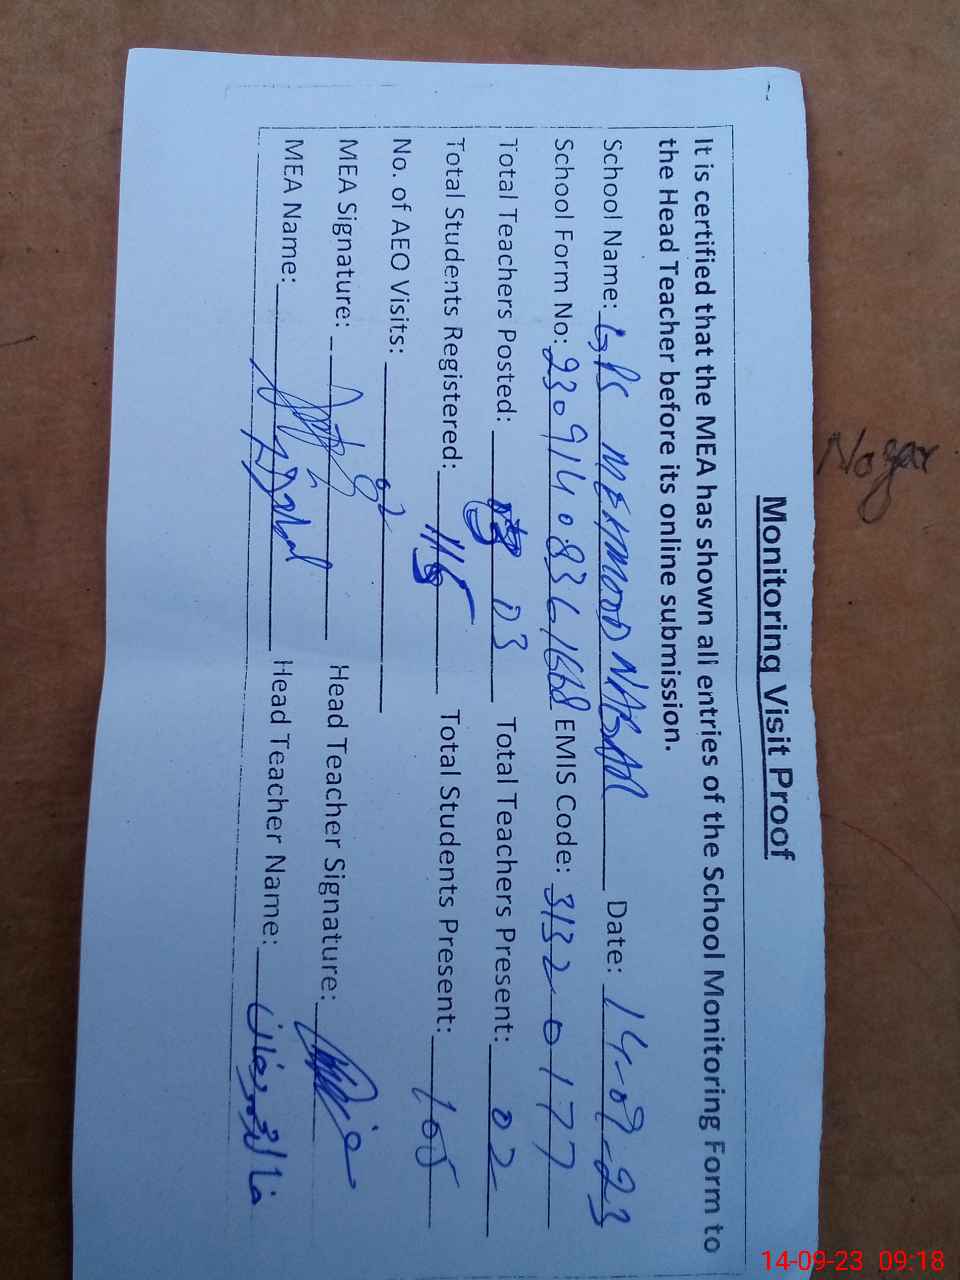 Nogar
Monitoring Visit Proof
It is certified that the MEA has shown all entries of the School Monitoring Form to
the Head Teacher before its online submission.
School Name: GPS MEHMOOD NABAD Date: 14-09-23
School Form No: 23091408361668 EMIS Code: 31320177
Total Teachers Posted: 03 Total Teachers Present: 02
Total Students Registered: 115 Total Students Present: 105
No. of AEO Visits: 02
MEA Signature: Head Teacher Signature:
MEA Name: Head Teacher Name:
14-09-23 09:18